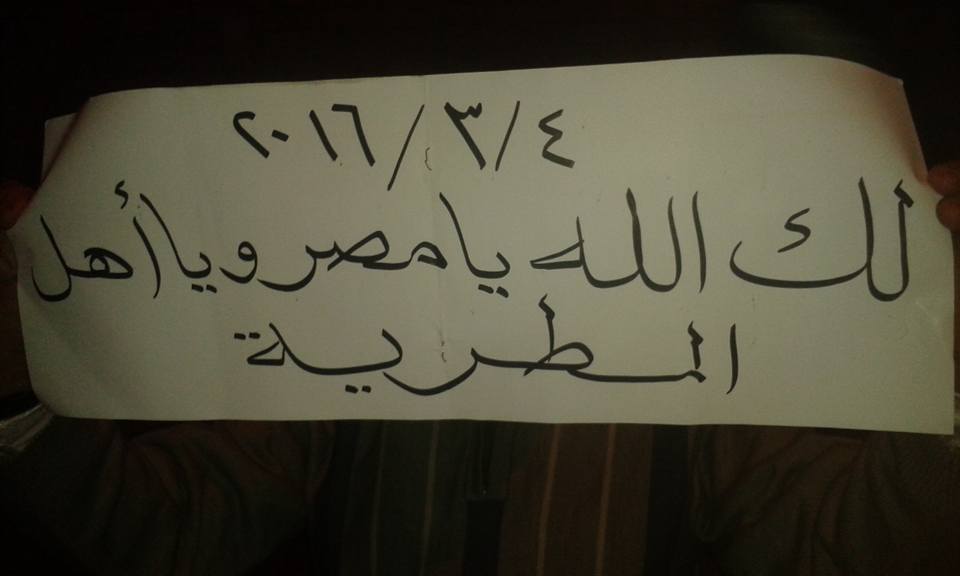 ٤/٣/٢٠١٦
لك الله يا مصر ويا أهل
المطرية